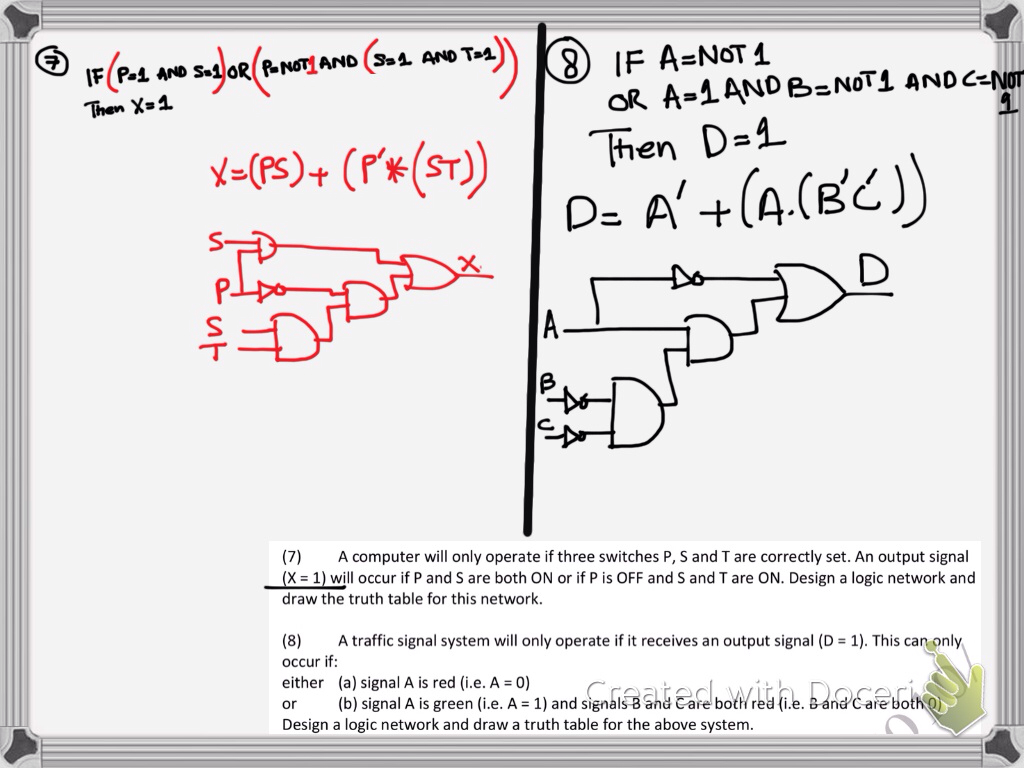 7 IF (P=1 AND S=1) OR (P=NOT1 AND (S=1 AND T=1))
Then X=1
X=(PS)+ (P'*(ST))
S
P
X.
S
T
8 IF A=NOT 1
OR A=1 AND B=NOT 1 AND C=NOT
1
Then D=1
D= A' + (A.(B'C'))
D
A
B
C
(7) A computer will only operate if three switches P, S and T are correctly set. An output signal
(X = 1) will occur if P and S are both ON or if P is OFF and S and T are ON. Design a logic network and
draw the truth table for this network.
(8) A traffic signal system will only operate if it receives an output signal (D = 1). This can only
occur if:
either (a) signal A is red (i.e. A = 0)
or (b) signal A is green (i.e. A = 1) and signals B and C are both red (i.e. B and C are both 0)
Design a logic network and draw a truth table for the above system.
Created with Doceri